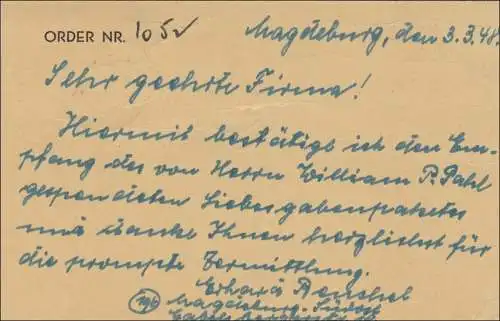 ORDER NR. 105
Magdeburg, den 3.3.48.
Sehr geehrte Firma!
Hiermit bestätige ich den Em-
pfang des von Herrn William P. Pahl
gespendeten Liebesgabenpaketes
und danke Ihnen herzlichst für
die prompte Vermittlung.
Erhard
(19b) Magdeburg-Südost